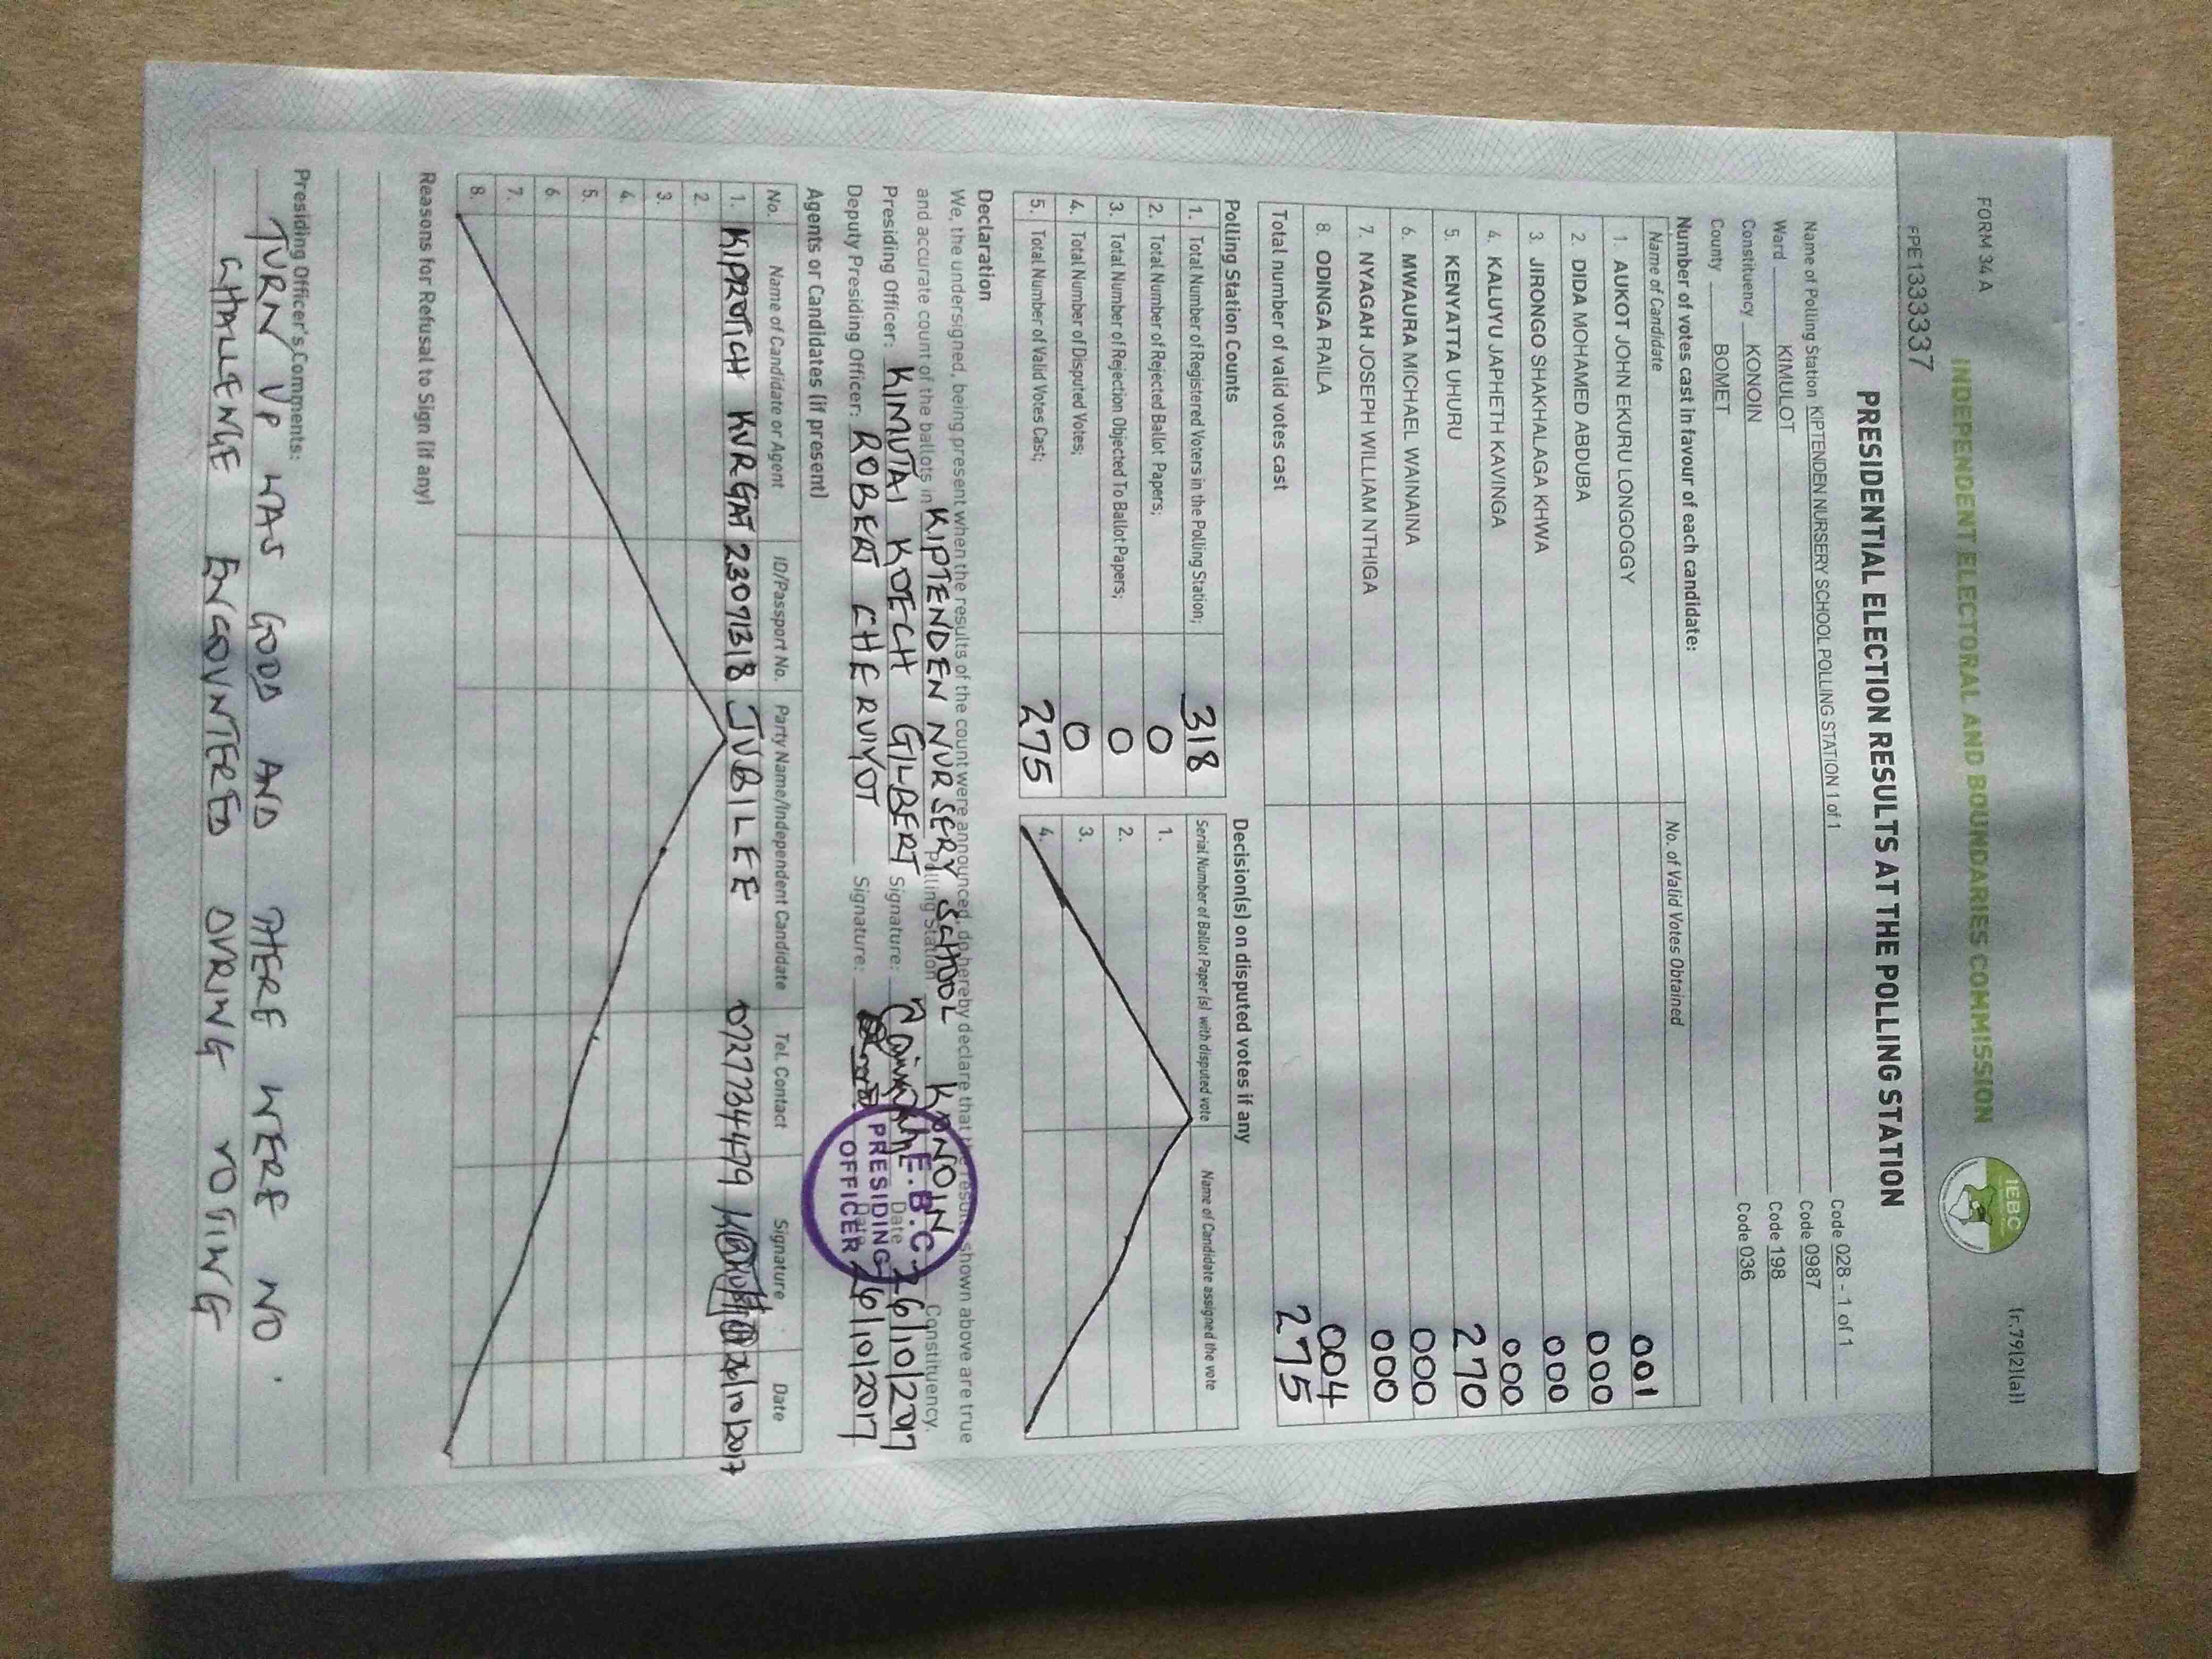 FORM 34 A
(r.79(2)(a))
INDEPENDENT ELECTORAL AND BOUNDARIES COMMISSION
IEBC
FPE133337
PRESIDENTIAL ELECTION RESULTS AT THE POLLING STATION
Name of Polling Station KIPTENDEN NURSERY SCHOOL POLLING STATION 1 of 1 Code 028 - 1 of 1
Ward KIMULOT Code 0987
Constituency KONOIN Code 198
County BOMET Code 036
Number of votes cast in favour of each candidate:
Name of Candidate No. of Valid Votes Obtained
1. AUKOT JOHN EKURU LONGOGGY 001
2. DIDA MOHAMED ABDUBA 000
3. JIRONGO SHAKHALAGA KHWA 000
4. KALUYU JAPHETH KAVINGA 000
5. KENYATTA UHURU 270
6. MWAURA MICHAEL WAINAINA 000
7. NYAGAH JOSEPH WILLIAM NTHIGA 000
8. ODINGA RAILA 004
Total number of valid votes cast 275
Polling Station Counts
1. Total Number of Registered Voters in the Polling Station; 318
2. Total Number of Rejected Ballot Papers; 0
3. Total Number of Rejection Objected To Ballot Papers; 0
4. Total Number of Disputed Votes; 0
5. Total Number of Valid Votes Cast; 275
Decision(s) on disputed votes if any
Serial Number of Ballot Paper (s) with disputed vote Name of Candidate assigned the vote
1.
2.
3.
4.
Declaration
We, the undersigned, being present when the results of the count were announced, do hereby declare that the results shown above are true
and accurate count of the ballots in KIPTENDEN NURSERY SCHOOL Polling Station KONOIN Constituency.
Presiding Officer: KIMUTAI KOECH GILBERT Signature: Date 26/10/2017
Deputy Presiding Officer: ROBERT CHERUIYOT Signature: Date 26/10/2017
I.E.B.C
PRESIDING
OFFICER
Agents or Candidates (if present)
No. Name of Candidate or Agent ID/Passport No. Party Name/Independent Candidate Tel. Contact Signature Date
1. KIPROTICH KURGAT 23071318 JUBILEE 0727734479 26/10/2017
2.
3.
4.
5.
6.
7.
8.
Reasons for Refusal to Sign (if any)
Presiding Officer's Comments:
TURN UP WAS GOOD AND THERE WERE NO
CHALLENGE ENCOUNTERED DURING VOTING